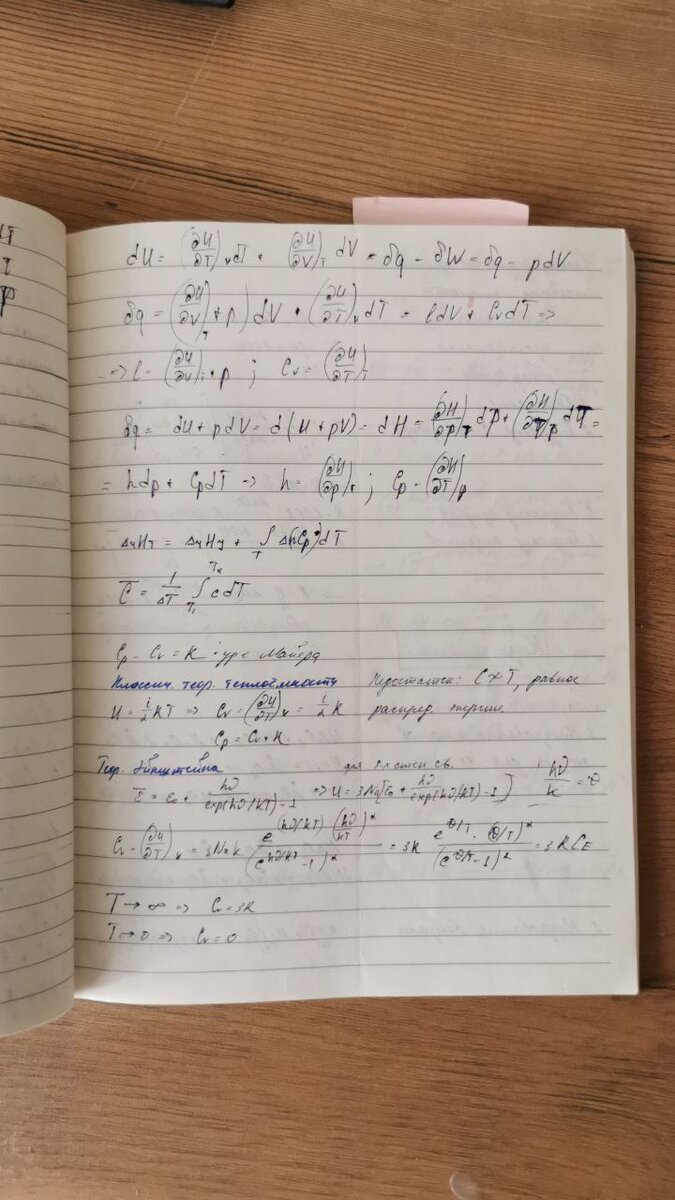 dU = (∂U/∂T)_V dT + (∂U/∂V)_T dV = δq - δW = δq - pdV
δq = ((∂U/∂V)_T + p) dV + (∂U/∂T)_V dT = ldV + C_V dT =>
=> l = (∂U/∂V)_T + p ; C_V = (∂U/∂T)_T
δq = dU + pdV = d(U + pV) = dH = (∂H/∂p)_T dp + (∂H/∂T)_p dT =
= hdp + C_p dT => h = (∂H/∂p)_T ; C_p = (∂H/∂T)_p
∫_T dT
c̄ = 1/ΔT ∫_{T₁}^{T₂} c dT
C_p - C_V = R - ур-е Майера
Классич. теор. теплоёмкости Недостатки: C ≠ T, равное
U = i/2 RT => C_V = (∂U/∂T)_V = i/2 R распред. энергии.
C_p = C_V + R
Теор. Эйнштейна для крист. св.
ε̄ = ε₀ + hν/(exp(hν/kT) - 1) => U = 3Na[ε₀ + hν/(exp(hν/kT) - 1)] hν/k = θ
C_V = (∂U/∂T)_V = 3Na k e^(hν/kT) (hν/kT)²/(e^(hν/kT) - 1)² = 3R e^(θ/T) · (θ/T)²/(e^(θ/T) - 1)² = 3R C_E
T → ∞ => C_V = 3R
T → 0 => C_V = 0